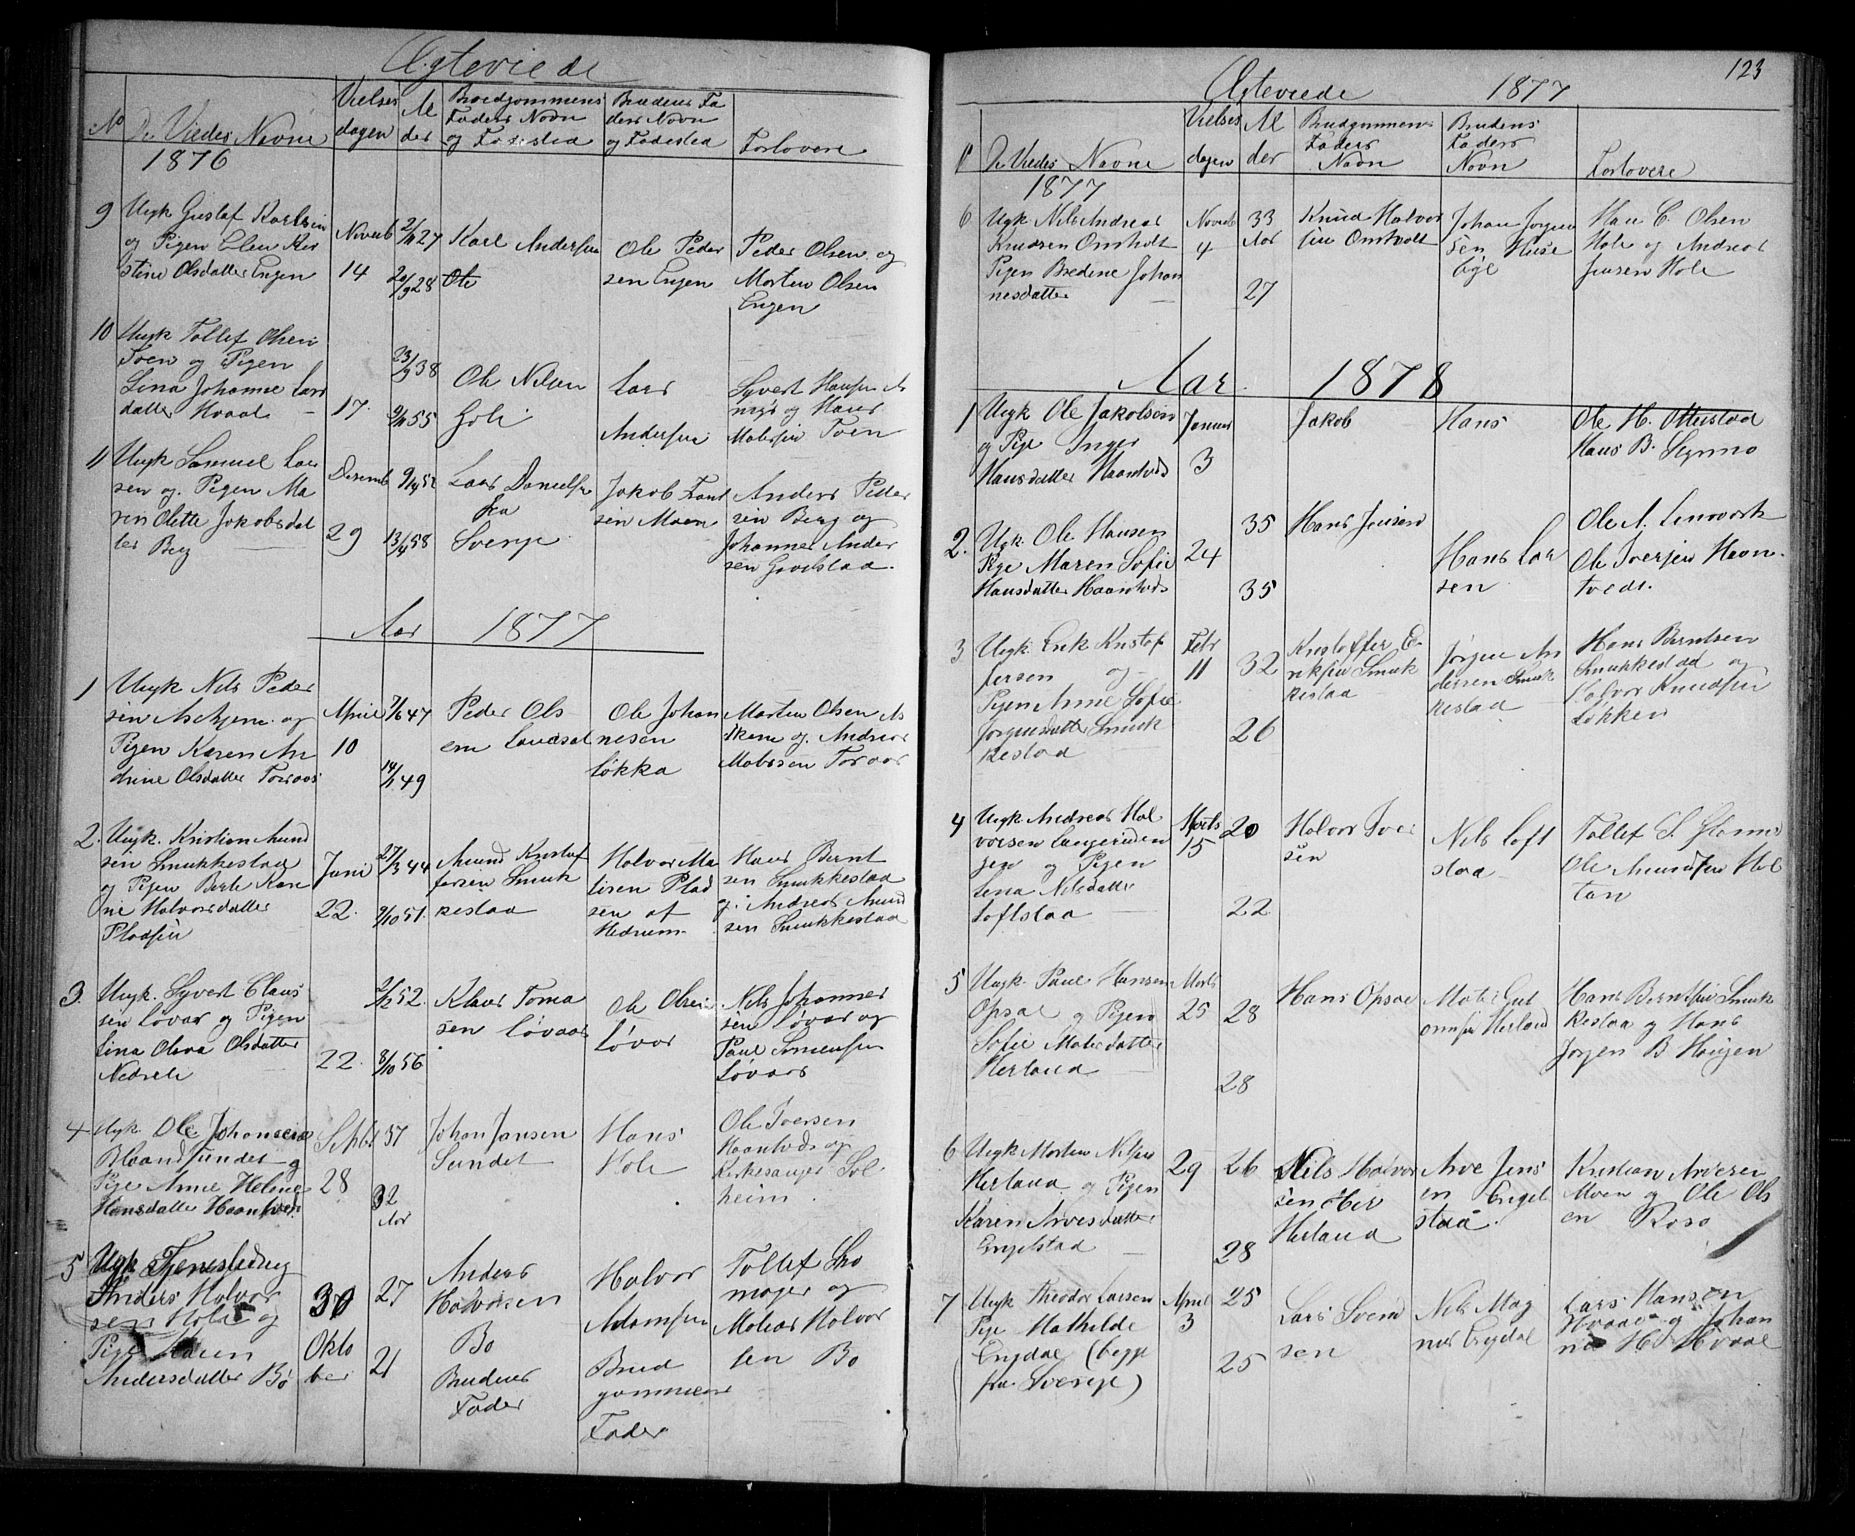 Ægteviede
No
De Viedes Navne
Vielses
dagen
Al
der
Brudgommens
Faders Navn
og Fødested
Brudens Fa
ders Navn
og Fødested
Forlovere
1876
9
Ungk Gustaf Karlsen
og Pigen Elen Ker
stine Olsdatter Engen
Novemb
14
27
28
Karl Andersen
Ole
Ole Peder
sen Engen
Peder Olsen og
Morten Olsen
Engen
10
Ungk Tollef Olsen
Toen og Pigen
Lina Johanne Lars
datter Hvaal
17.
38
55
Ole Nilsen
Lars
Andersen
Syvert Hansen
og Hans
Toen
11
Ungk Samuel Lar
sen og Pigen Ma
ren Olette Jakobsdat
ter Berg
Desemb
29
13/4 58
Lars Danielsen
fra
Sverje
Jakob
sen Moen
Anders Peder
sen Berg og
Johannes Ander
sen
Aar 1877
1
Ungk Nils Peder
sen Askjem og
Pigen Karen An
drine Olsdatter Toraas
April
10
7/6 47
49
Peder Ols
en
Ole Johan
nesen
Løkka
Morten Olsen As
kem og Andreas
2.
Ungk. Kristian Amund
sen Smukkestad
og Pigen Berte Kar
ine Halvorsdatter
Pladsen
Juni
22.
27/3 44
9/10 51.
Amund Kristof
fersen Smuk
kestad
Halvor Ma
tisen Plad
sen af
Hedrum
Hans Bernt
sen Smukkestad
og Andreas Amund
sen Smukkestad
3.
Ungk. Syvert Claus
sen Løvar og Pigen
Lina Olava Olsdatter
22.
52.
8/10 56
Klaus Toma
sen Løvaas
Ole Olsen
Løvar
Nils Johannes
sen Løvar og
Paul Simensen
Løvaas
4
Ungk. Ole Johansen
og
Pige Anne Helene
Hansdatter Haantveds
Septb
28
37
32
Aar
Johan Jansen
Sundet
Hans
Hole
Ole Iversen
Haantveds og
Kirkesanger Sol
heim.
5
Ungk
Anders Halvor
sen Hole og
Pige Maren
Andersdatter Bø
30
Okto
ber
27
21
Anders
Halvorsen
Bo
Brudens
Fader
Halvor
Adamsen
Brud
gommens
Fader
Tollef
og
Halvor
sen Bo
123
Ægteviede 1877
De Viedes Navne
Vielses
dagen
Al
der
Brudgommens
Faders
Navn
Brudens
Faders
Navn
Forlovere
1877
6
Ungk Nils Andreas
Knudsen Omholt
Pigen Bredine Johan
nesdatter
Novemb
4
33
Aar
27
Knud Halvor
sen Omtvedt
Johan Jørgen
sen Huse
bye
Han C. Olsen
Hole og Andreas
Jensen Hole
Aar 1878
1
Ungk Ole Jakobsen
og Pige Inger
Hansdatter Haantveds
Januar
3
Jakob
Hans
Ole H. Ottestad
Hans B.
2.
Ungk. Ole Hansen
Pige Maren Sofie
Hansdatter Haantveds
24
35
35
Hans Jensen
Hans Lar
sen
Ole A.
Ole Iversen Haan
tvedt.
3
Ungk. Erik Kristof
fersen og
Pigen Anne Sofie
Jørgensdatter Smuk
kestad
Febr
11
32
26
Kristoffer E
riksen Smuk
kestad
Jørgen An
dersen Smuk
kestad
Hans Berntsen
Smukkestad og
Halvor Knudsen
Løkken
4
Ungk Andreas Hal
vorsen
og Pigen
Lena Nilsdatter
Loftstad
Marts
15
20
22
Halvor Iver
sen
Nils Loft
staa
Tollef S.
Ole Amundsen Hol
tan
5
Ungk. Paul Hansen
Opsal og Pigen
Sofie Matisdatter
Herland
Marts
25
28
28
Hans Opsal
Matis
Herland
Hans Berntsen Smuk
kestad og Hans
Jørgen B Haugen
6
Ungk Morten Nilsen
Herland og Pigen
Karen Arvesdatter
Engelstad
29
26
28
Nils Halvor
sen Her
Herland
Arve Jens
en Engel
staa.
Kristian Arvesen
Moen og Ole Ols
en
7
Ungk Theodor Larsen
Pige Mathilde
Engdal (begge
fra Sverige)
April
3
25
25
Lars Svend
sen
Nils Mag
nus Engdal
Lars Hansen
Hvaal og Johan
nes H Hvaal